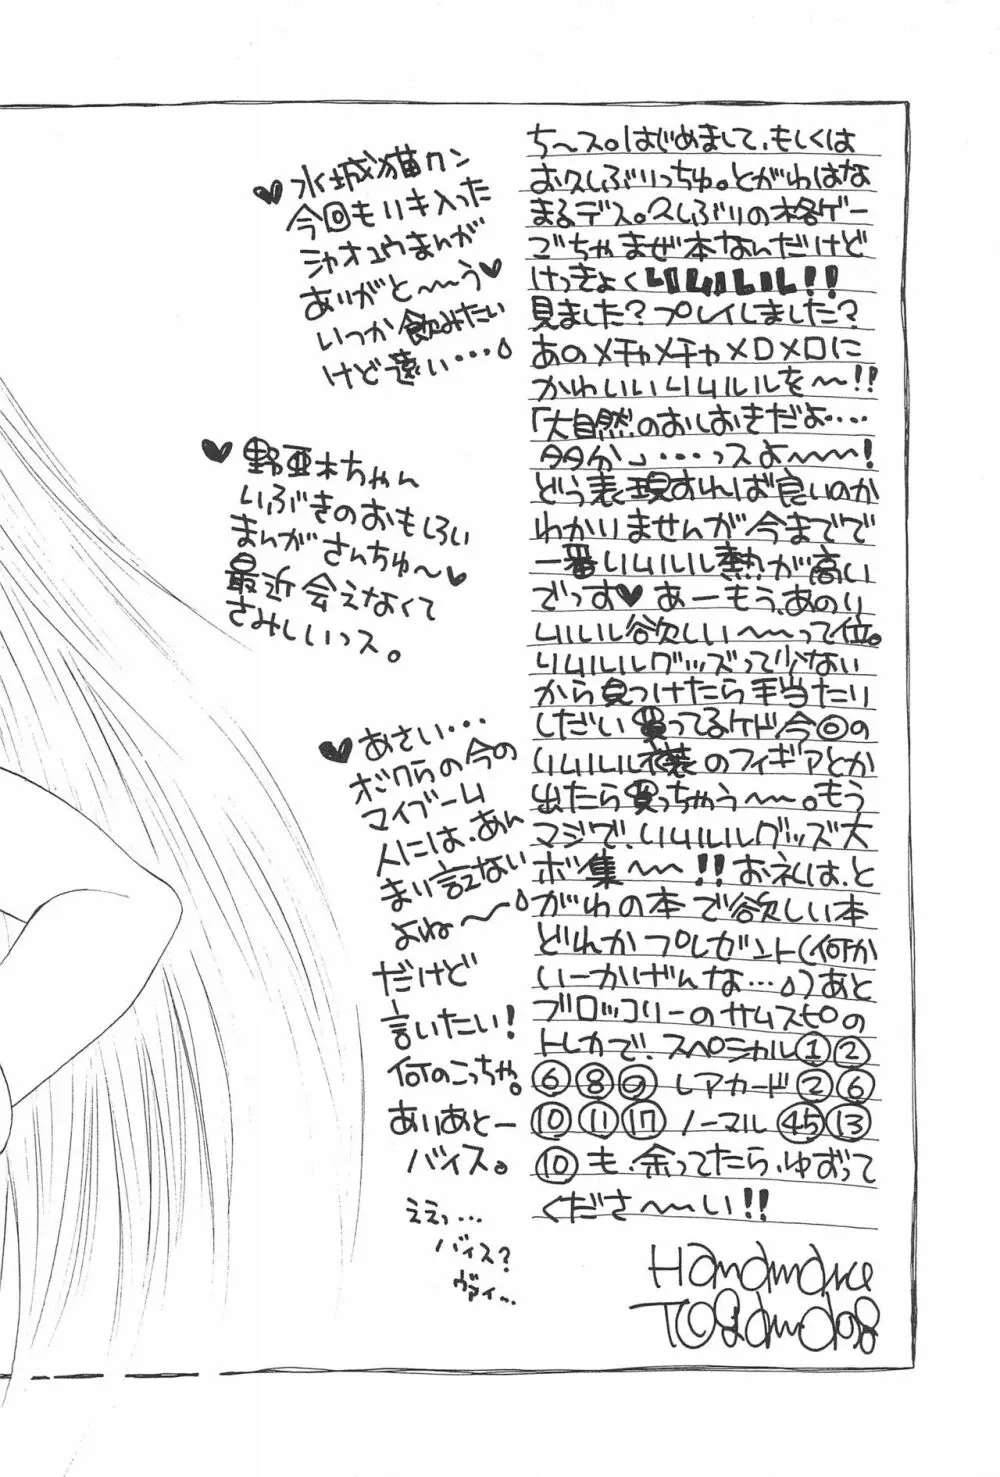 ち〜ス。はじめまして、もしくは
お久しぶりっちゅ。とがわはな
まるデス。久しぶりの格ゲー
ごちゃまぜ本なんだけど
けっきょくリムルル!!
見ました?プレイしました?
あのメチャメチャメロメロに
かわいいリムルルを〜!!
「大自然のおしおきだよ‥‥
多分」‥‥っスよ〜〜〜!
どう表現すれば良いのか
わかりませんが今までで
一番リムルル熱が高い
でっす♥あーもう、あのリ
ムルル欲しい〜〜って位。
リムルルグッズって少ない
から見つけたら手当たり
しだい買ってるケド今回の
リムルル衣装のフィギアとか
出たら買っちゃう〜〜。もう
マジで、リムルルグッズ大
ボ集〜〜!!お礼は、と
がわの本で欲しい本
どれかプレゼント(何か
いーかげんな…)あと
ブロッコリーのサムスピの
トレカで、スペシャル①②
⑥⑧⑨レアカード②⑥
⑩⑪⑰ノーマル㊺⑬
⑩も、余ってたら、ゆずって
くださ〜〜い!!
♥水城猫クン
今回もリキ入った
シャオユウまんが
ありがと〜〜う♥
いつか飲みたい
けど遠い‥‥
♥野亜木ちゃん
いぶきのおもしろい
まんがさんちゅ〜♥
最近会えなくて
さみしいっス。
♥あさい‥‥
ボクらの今の
マイブーム
人には、あん
まり言えない
よね〜〜
だけど
言いたい!
何のこっちゃ。
ありあとー
バイス。
ええっ…
バイス?
ヴァイ〜